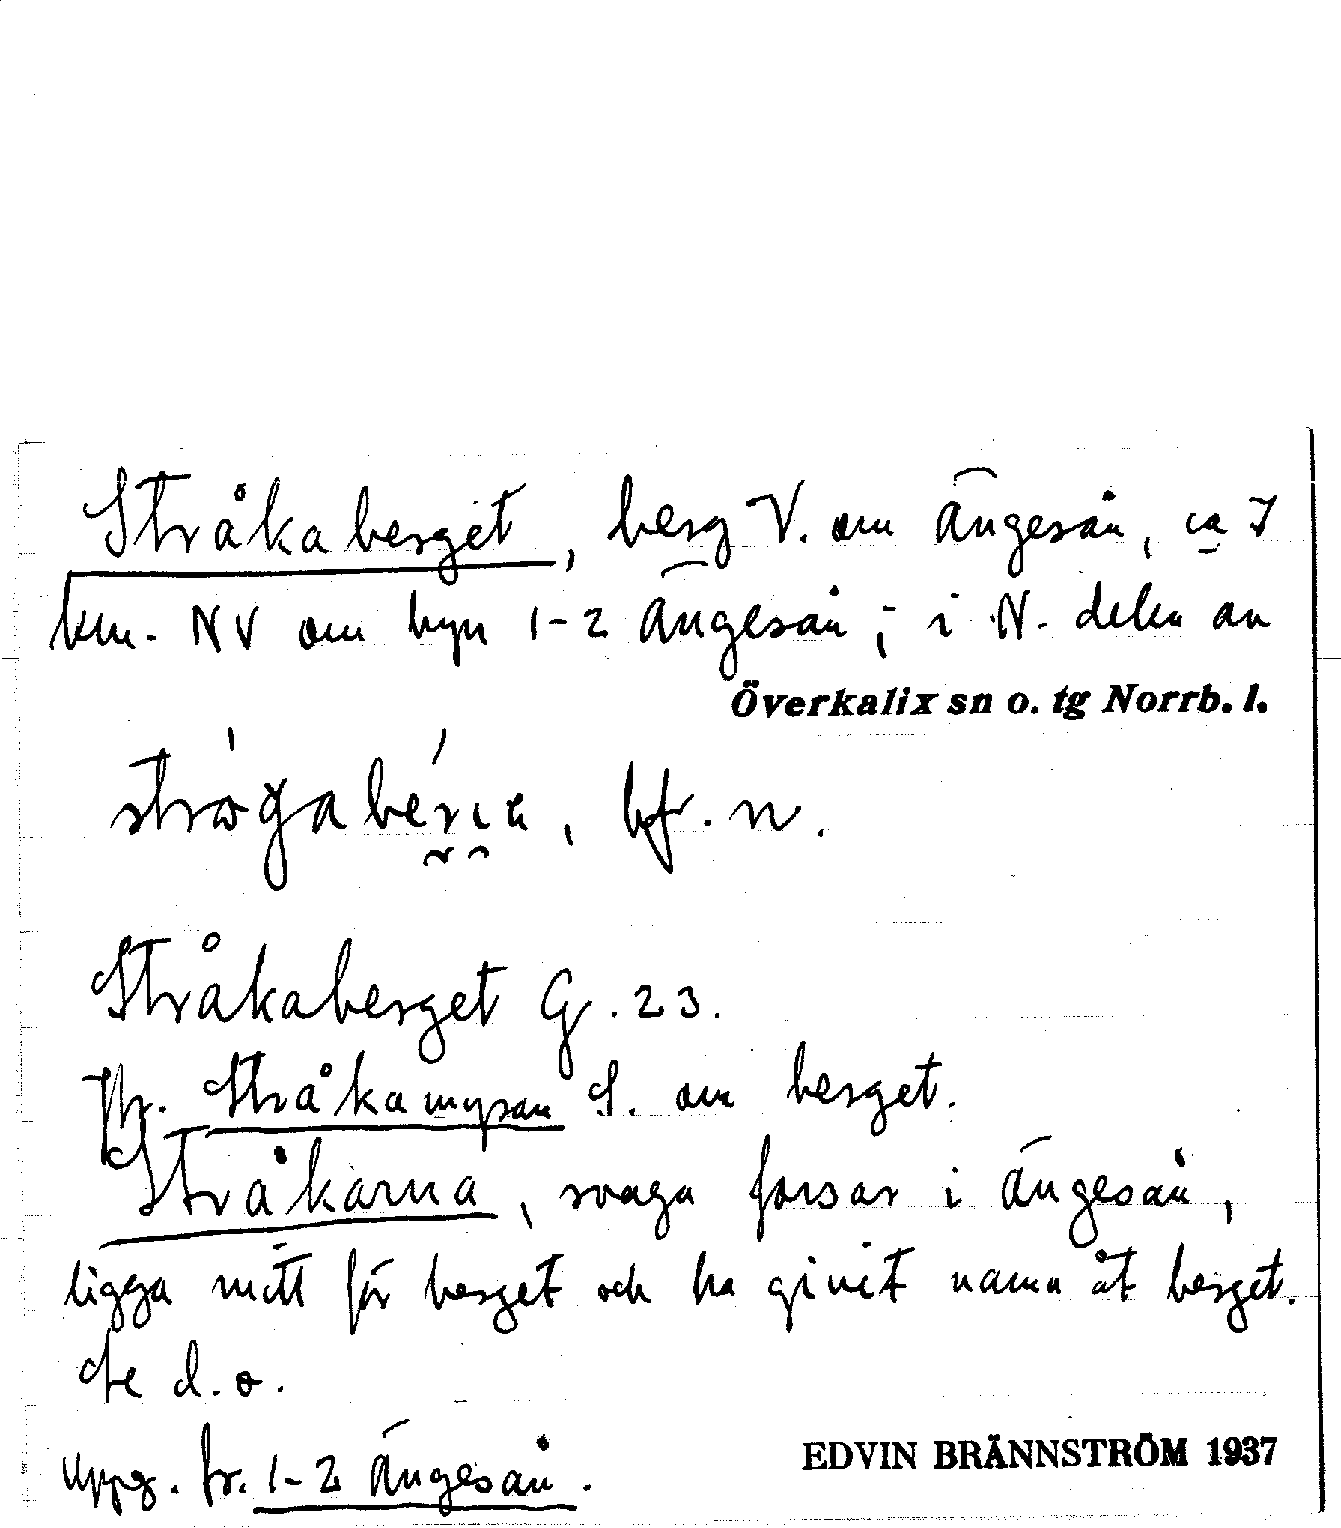 Stråkaberget, berg V. om Ängesån, ca 7
km. NV om byn 1-2 Ängesån; i N. delen av
Överkalix sn o. tg Norrb. l.
bf. n.
Stråkaberget G. 23.
Jfr. Stråkamyran S. om berget.
Stråkarna, svaga forsar i Ängesån,
ligga mitt för berget och ha givit namn åt berget.
Se d. o.
Uppg. fr. 1-2 Ängesån.
EDVIN BRÄNNSTRÖM 1937